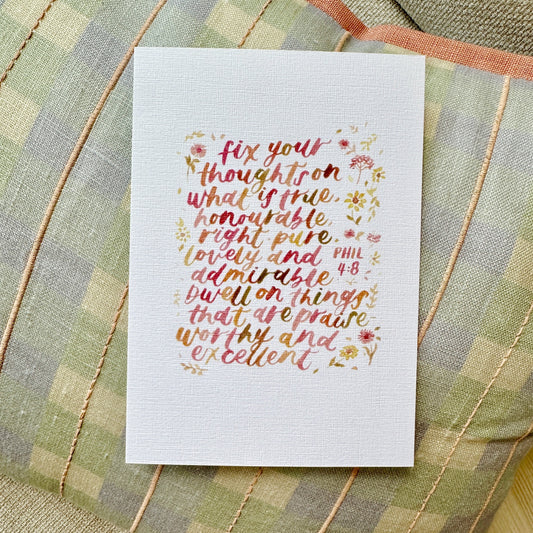 fix your
thoughts on
what is true,
honourable,
right, pure,
lovely and
admirable
Dwell on things
that are praise-
worthy and
excellent
PHIL
4:8